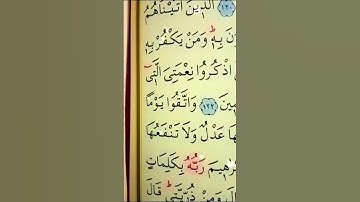 ١٢٠ اَلَّذِينَ اٰتَيْنَاهُمُ
نَ بِهِ وَمَنْ يَكْفُرْ بِهِ
اذْكُرُوا نِعْمَتِيَ الَّتِي
مِينَ ١٢٢ وَاتَّقُوا يَوْمًا
هَا عَدْلٌ وَلَا تَنْفَعُهَا
رٰهِيمَ رَبُّهُ بِكَلِمَاتٍ
وَمِنْ ذُرِّيَّتِي قَالَ